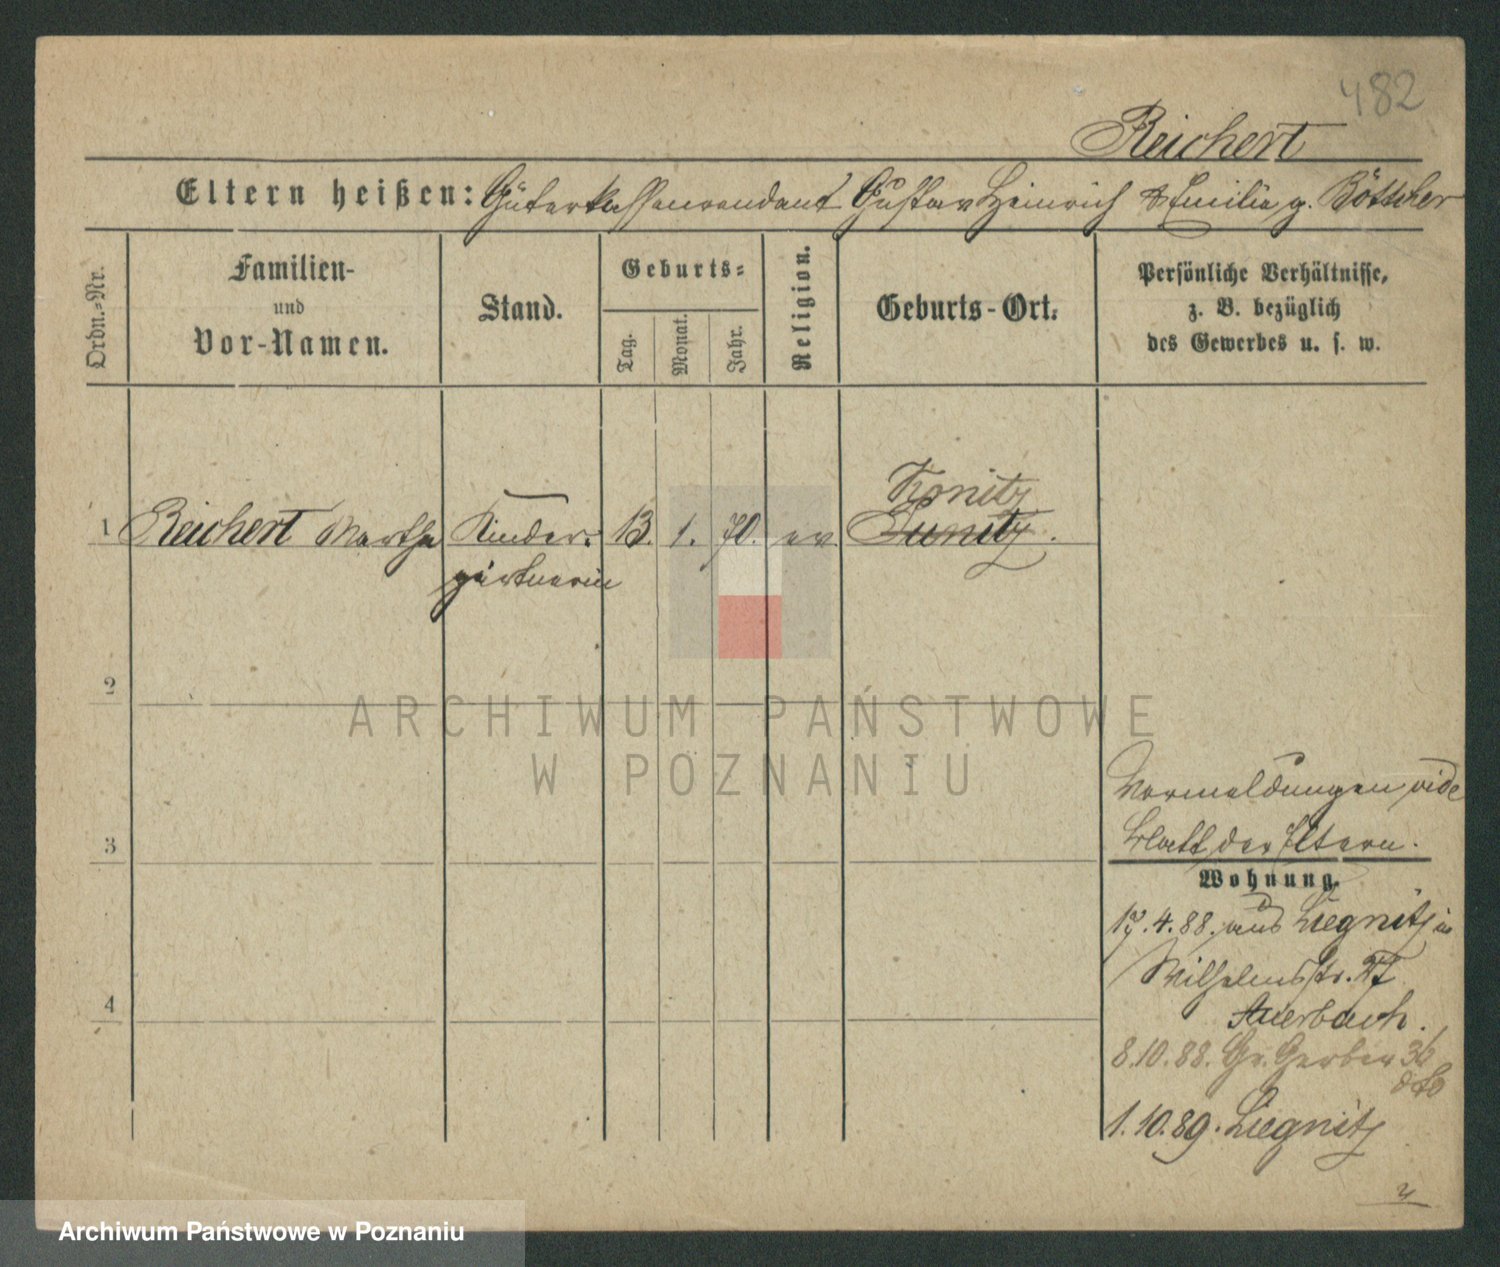 482
Reichert
Eltern heißen: Güterkassenrendant Gustav Heinrich & Emilie g. Böttcher
Ordn.-Nr.
Familien-
und
Vor-Namen.
Stand.
Geburts=
Tag.
Monat.
Jahr.
Religion.
Geburts-Ort.
Persönliche Verhältnisse,
z. B. bezüglich
des Gewerbes u. s. w.
Konitz
1 Reichert Martha Kinder- 13. 1. 70. ev. Kunitz.
gärtnerin
2
ARCHIWUM PAŃSTWOWE
W POZNANIU
Vormeldungen vide
3 Blatt der Eltern.
Wohnung.
17.4.88. aus Liegnitz in
Wilhelmsstr. 27
4 Auerbach.
8.10.88. Gr. Gerber 36
dto
1.10.89. Liegnitz
Archiwum Państwowe w Poznaniu